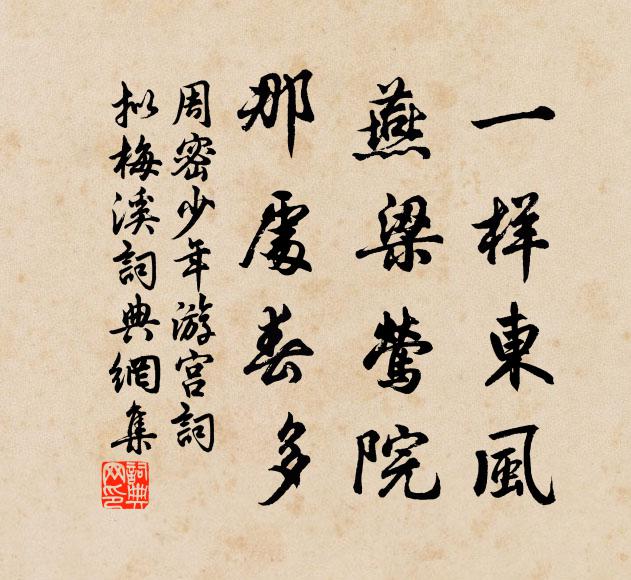 一樣東風
燕梁鶯院
那處春多
周密少年游宫詞
拟梅溪詞典網集
詞典網印